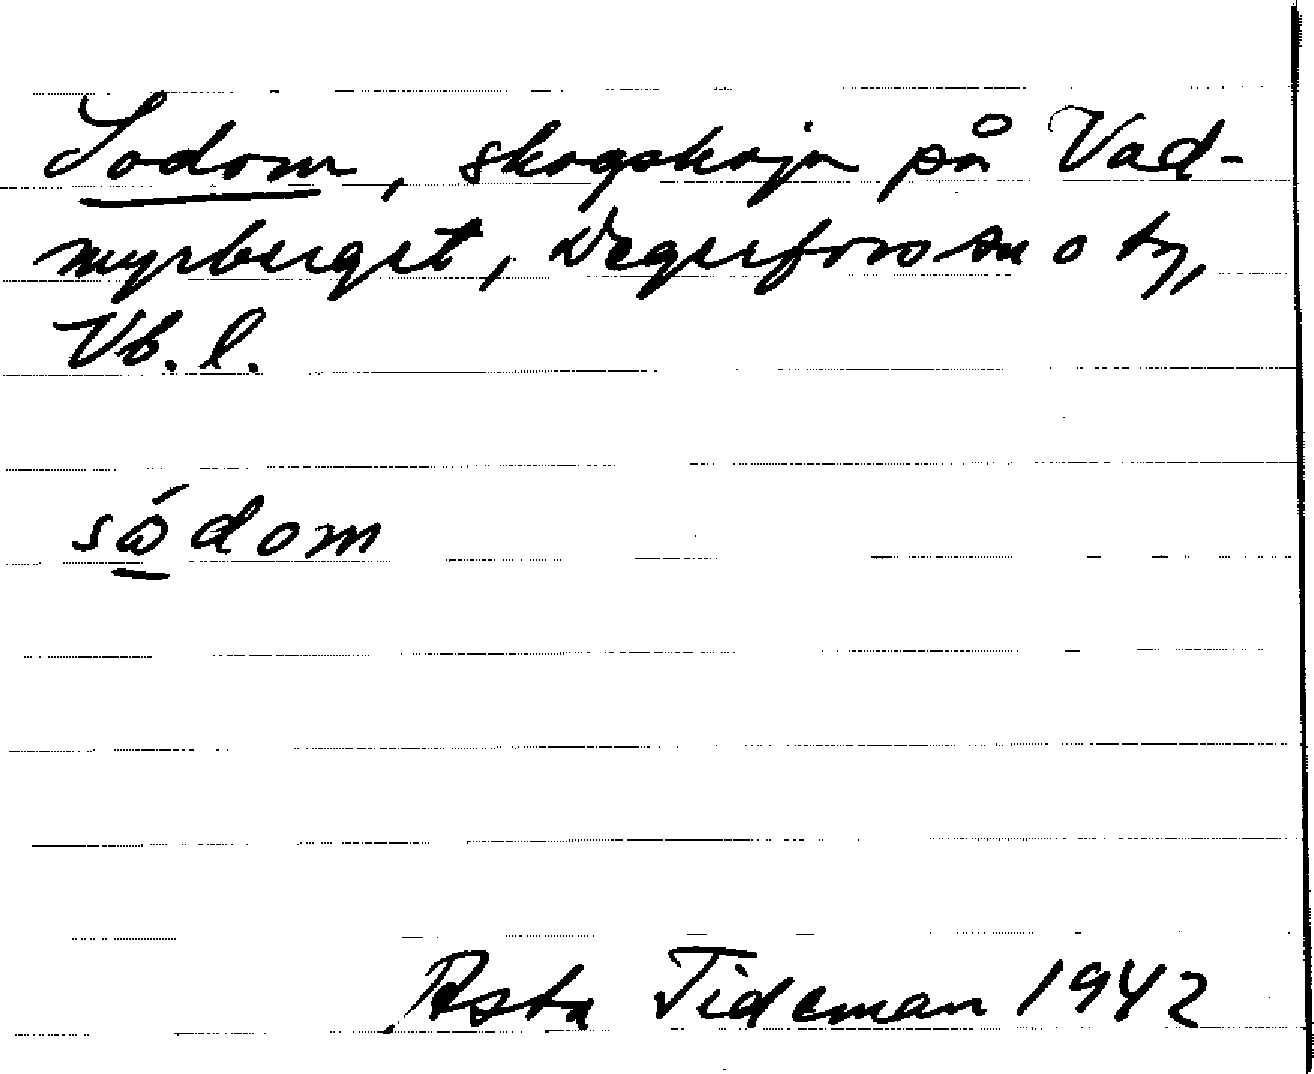 Sodom, skogskoja på Vad-
myrberget, Degerfors sn o ty,
Vb. l.
sódom
Asta Tideman 1942